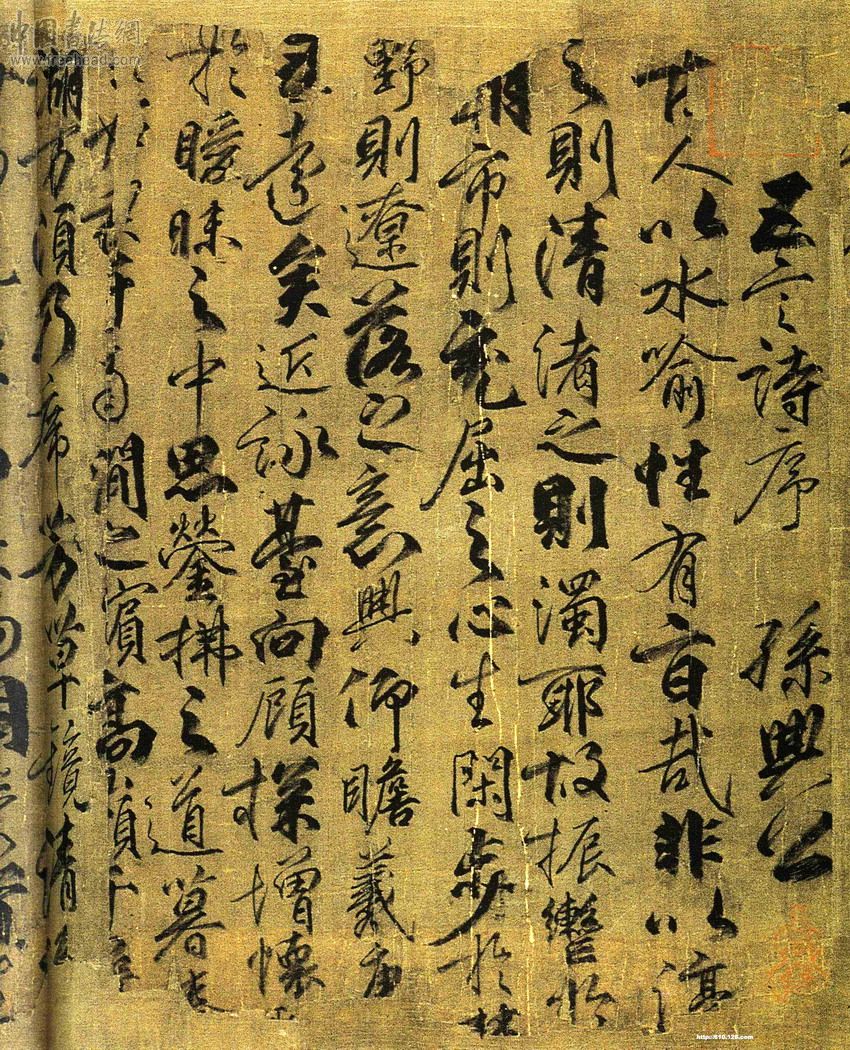 五言詩序 孫興公
古人以水喻性有旨哉非以渟
之則清渚之則濁耶故振轡於
朝市則充屈之心生閑步於林
野則遼落之意興仰瞻羲唐
遠矣近詠臺向顧探增懷
於曖昧之中思瑩拂之道暮春
于南澗之濱高嶺千尋
湖万頃乃席芳草鏡清流
中国书法網
www.freehead.com